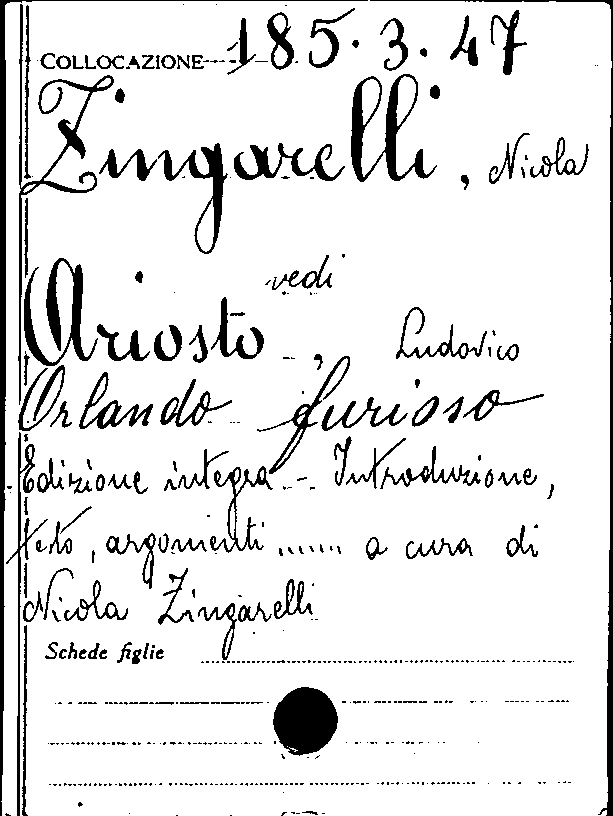 COLLOCAZIONE 185.3.47
Zingarelli, Nicola
vedi
Ariosto, Ludovico
Orlando furioso
Edizione integra - Introduzione,
testo, argomenti ...... a cura di
Nicola Zingarelli
Schede figlie